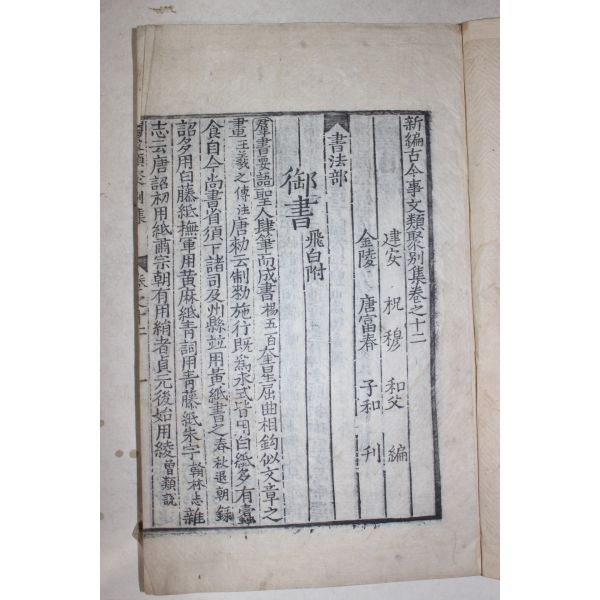 新編古今事文類聚別集卷之十二
建安 祝穆 和父 編
金陵 唐富春 子和 刊
書法部
御書 飛白附
羣書要語聖人肆筆而成書楊五百奎星屈曲相鉤似文章之
畫王羲之傳注唐勑云制勑施行既爲永式皆用白紙多有蠹
食自今尚書省頒下諸司及州縣並用黃紙書之春秋退朝錄
詔多用白藤紙撫軍用黃麻紙青詞用青藤紙朱字翰林志雜
志云唐詔初用紙肅宗朝有用絹者貞元後始用綾曾類説